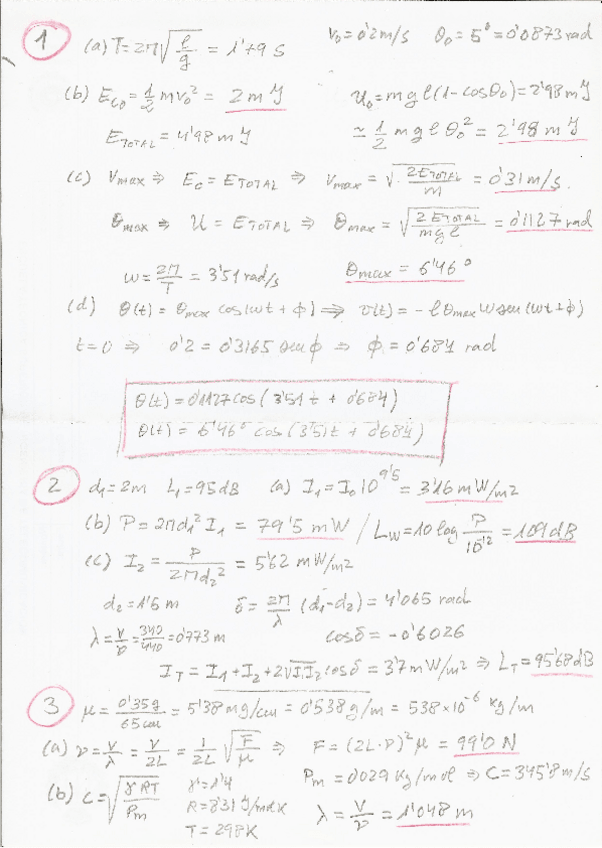 1 (a) T = 2π√(l/g) = 1'79 s   v₀ = 0'2 m/s   θ₀ = 5° = 0'0873 rad
(b) E_C₀ = 1/2 m v₀² = 2 mJ   U₀ = m g l (1 - cos θ₀) = 2'98 mJ
E_TOTAL = 4'98 mJ   ≃ 1/2 m g l θ₀² = 2'98 mJ
(c) v_max ⇒ E_C = E_TOTAL ⇒ v_max = √(2 E_TOTAL/m) = 0'31 m/s.
θ_max ⇒ U = E_TOTAL ⇒ θ_max = √(2 E_TOTAL/mgl) = 0'1127 rad
ω = 2π/T = 3'51 rad/s   θ_max = 6'46°
(d) θ(t) = θ_max cos(ωt + φ) ⇒ v(t) = -l θ_max ω sen(ωt + φ)
t = 0 ⇒ 0'2 = 0'3165 sen φ ⇒ φ = 0'684 rad
θ(t) = 0'1127 cos(3'51 t + 0'684)
θ(t) = 6'46° cos(3'51 t + 0'684)
2 d₁ = 2m   L₁ = 95 dB   (a) I₁ = I₀ 10^9'5 = 3'16 mW/m²
(b) P = 2π d₁² I₁ = 79'5 mW / L_W = 10 log P/10⁻¹² = 109 dB
(c) I₂ = P/2πd₂² = 5'62 mW/m²
d₂ = 1'5 m   δ = 2π/λ (d₁ - d₂) = 4'065 rad
λ = v/ν = 340/440 = 0'773 m   cos δ = -0'6026
I_T = I₁ + I₂ + 2√(I₁I₂) cos δ = 3'7 mW/m² ⇒ L_T = 95'68 dB
3 μ = 0'35 g/65 cm = 5'38 mg/cm = 0'538 g/m = 538×10⁻⁶ kg/m
(a) ν = v/λ = v/2L = 1/2L √(F/μ) ⇒ F = (2L·ν)² μ = 99'0 N
(b) c = √(γRT/P_m)   γ = 1'4   P_m = 0'029 kg/mol ⇒ c = 345'8 m/s
R = 8'31 J/molK   λ = v/ν = 1'048 m
T = 298 K